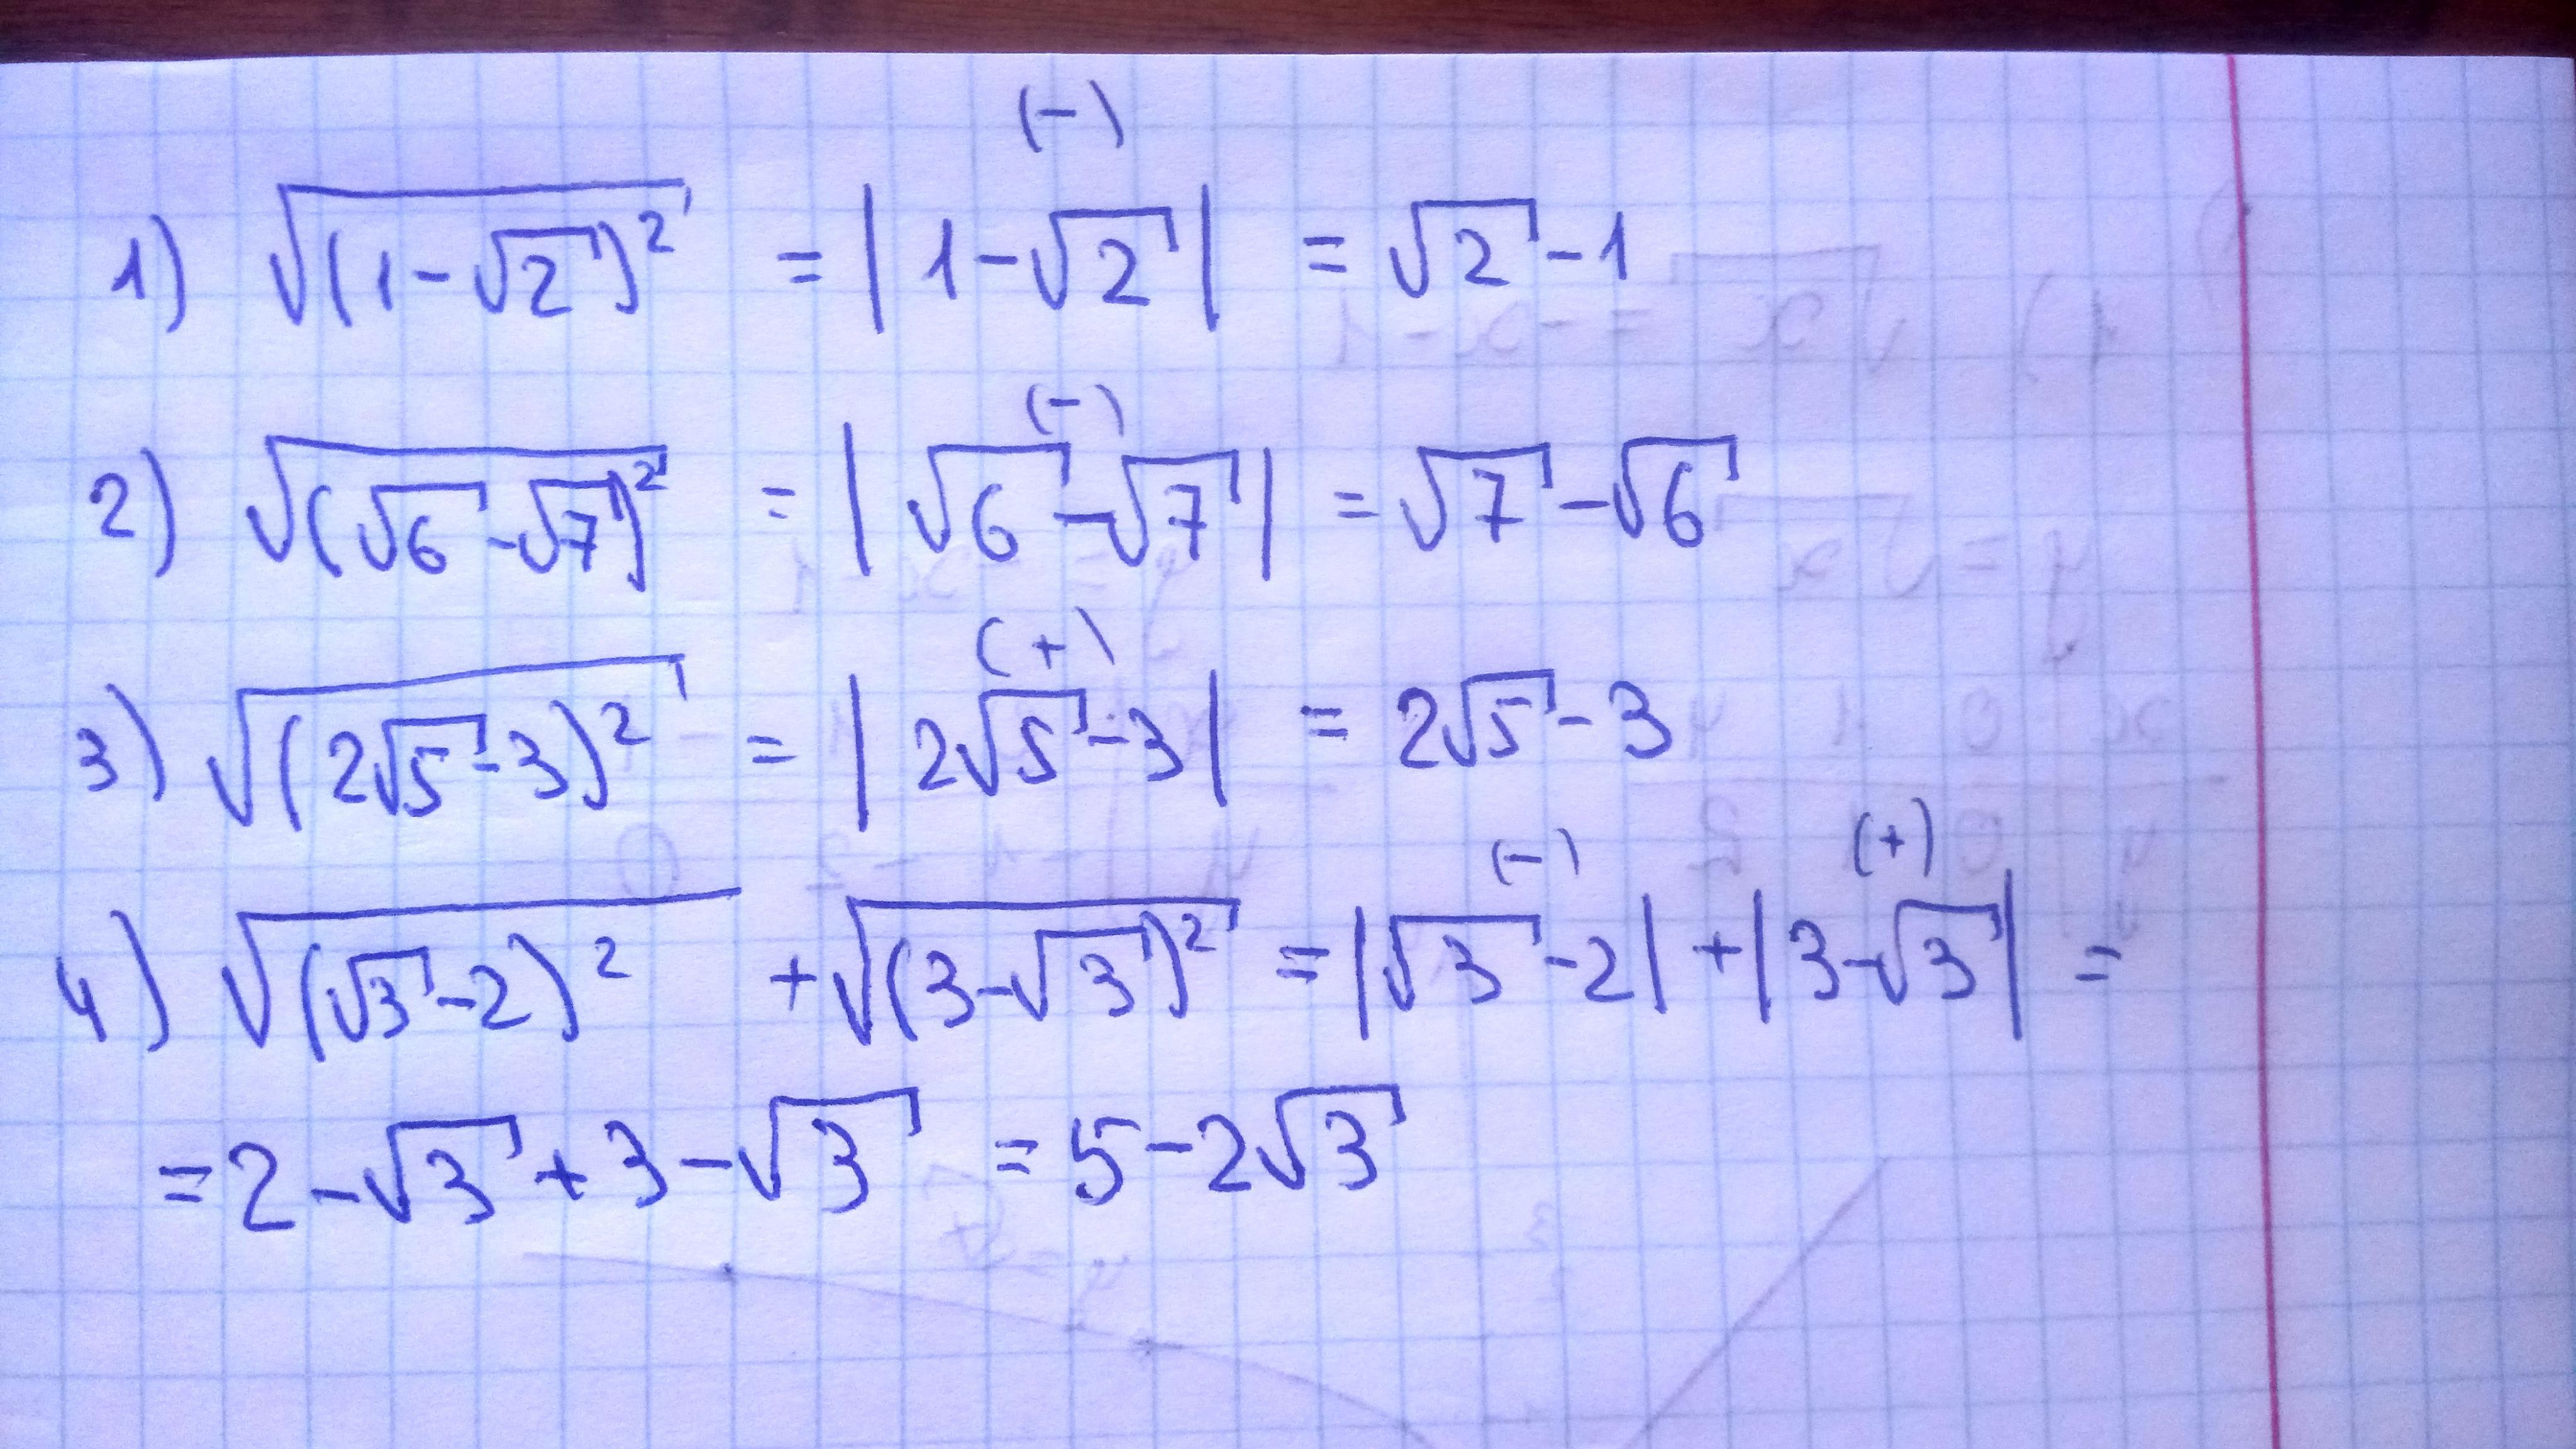 (-)
1) √((1-√2)²) = |1-√2| = √2 - 1
(-)
2) √((√6-√7)²) = |√6-√7| = √7 - √6
(+)
3) √((2√5-3)²) = |2√5-3| = 2√5 - 3
(-) (+)
4) √((√3-2)²) + √((3-√3)²) = |√3-2| + |3-√3| =
= 2 - √3 + 3 - √3 = 5 - 2√3